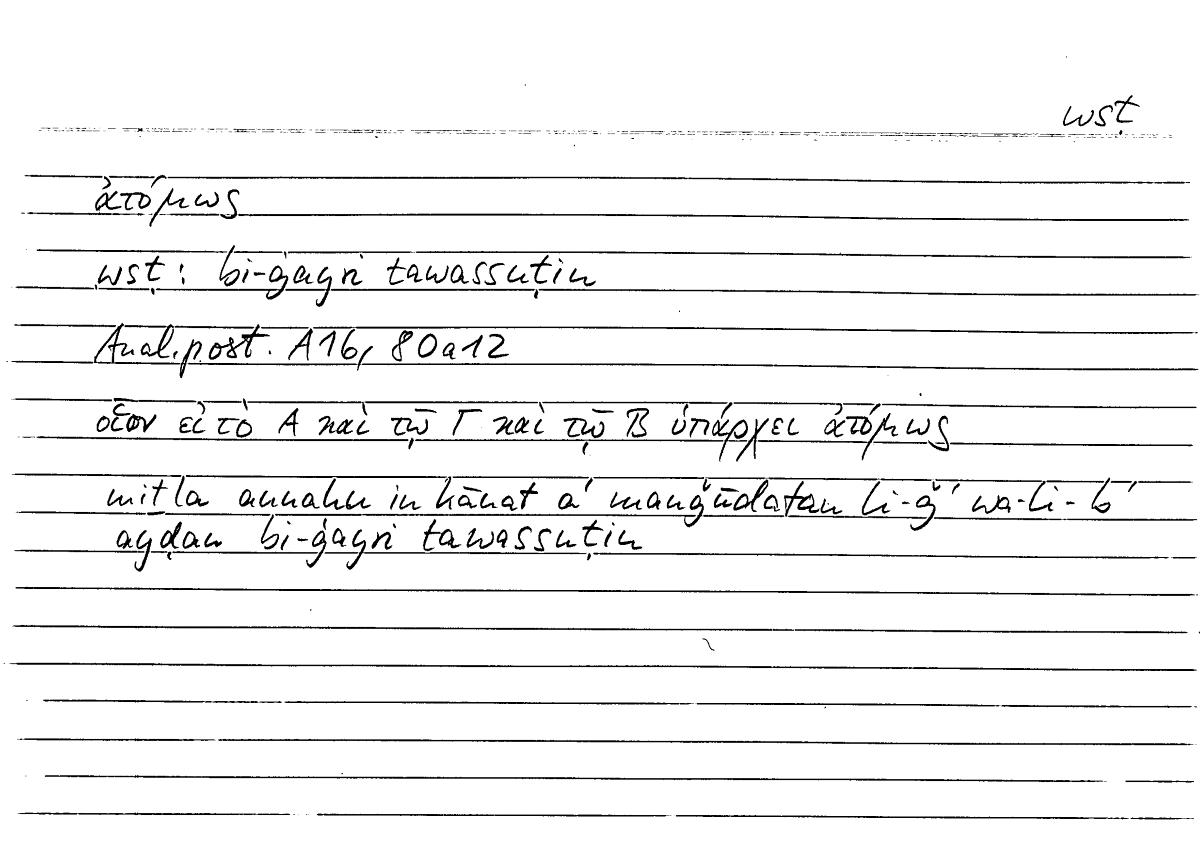 wsṭ
ἀτόμως
wsṭ: bi-ġayri tawassuṭin
Anal. post. A16, 80a12
οἷον εἰ τὸ Α καὶ τῷ Γ καὶ τῷ Β ὑπάρχει ἀτόμως
miṯla annahu in kānat a' mauǧūdatan li-ǧ' wa-li-b'
ayḍan bi-ġayri tawassuṭin